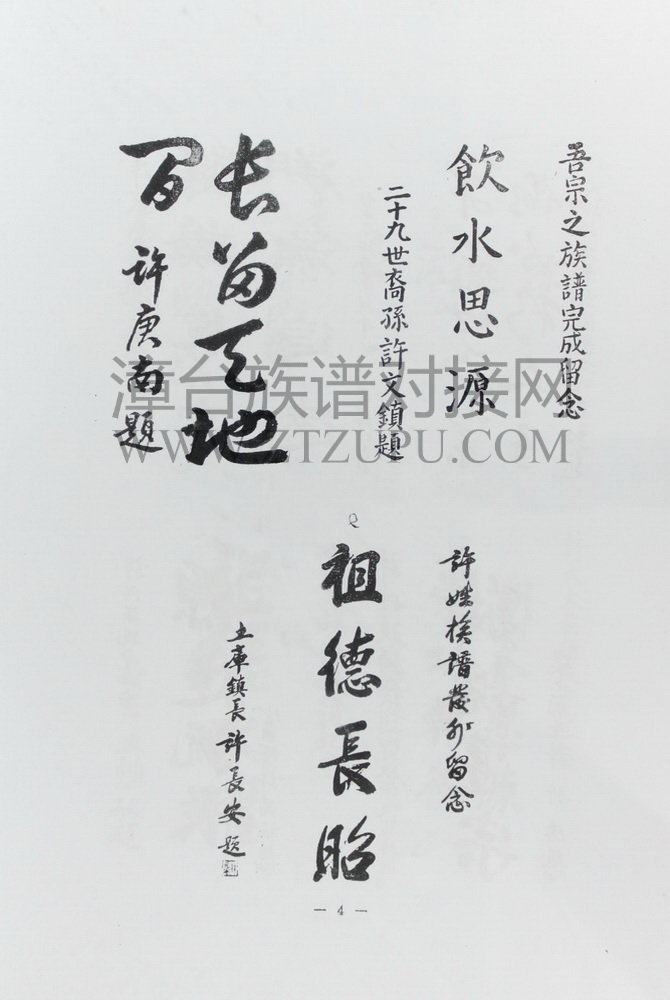 吾宗之族譜完成留念
飲水思源
二十九世裔孫許文鎮題
长留天地
间
许庚南題
漳台族谱对接网
WWW.ZTZUPU.COM
許姓族譜發刊留念
祖德長昭
土庫鎮長許長安題
— 4 —